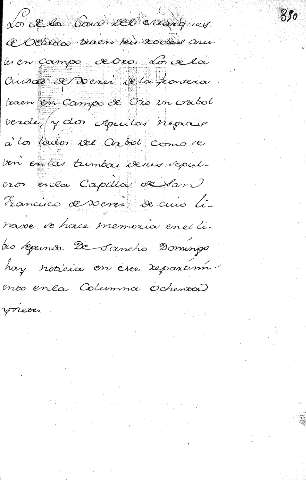 850
Los de la Casa del Marques
de
en Campo de Oro. Los de la
Ciudad de Xerez de la frontera
traen en Campo de Oro un arbol
verde, y dos Aguilas negras
á los lados del Arbol como se
ven en las tumbas de sus sepul-
cros en la Capilla de San
Francisco de Xerez. De cuio li-
nage se hace memoria en el li-
bro segundo. De Sancho Domingo
hay noticia en ese repartimi-
ento en la Columna ochenta
y